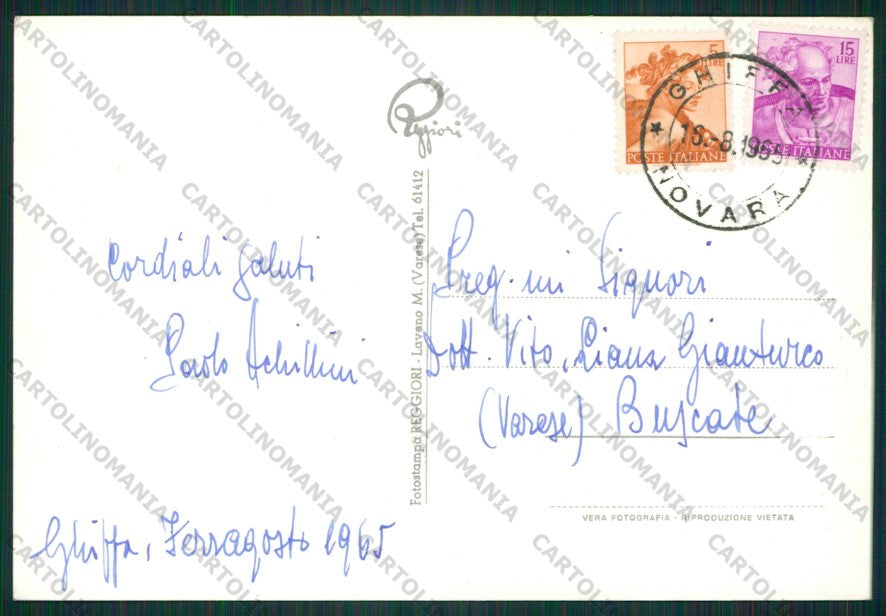 Reggiori
5
LIRE
POSTE ITALIANE
15
LIRE
POSTE ITALIANE
GHIFFA
16.-8.1965
NOVARA
Cordiali saluti
Paolo Achillini
Ghiffa, Ferragosto 1965
Fotostampa REGGIORI - Laveno M. (Varese) Tel. 61412
Preg.mi Signori
Dott. Vito, Liana Gianturco
(Varese) Buscate
VERA FOTOGRAFIA - RIPRODUZIONE VIETATA
CARTOLINOMANIA